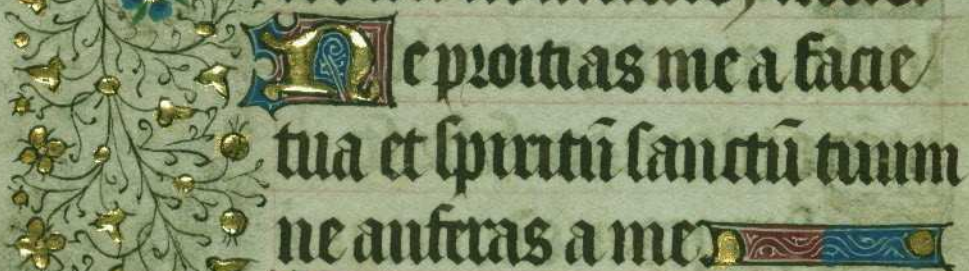 Ne proicias me a facie
tua et spiritū sanctū tuum
ne auferas a me